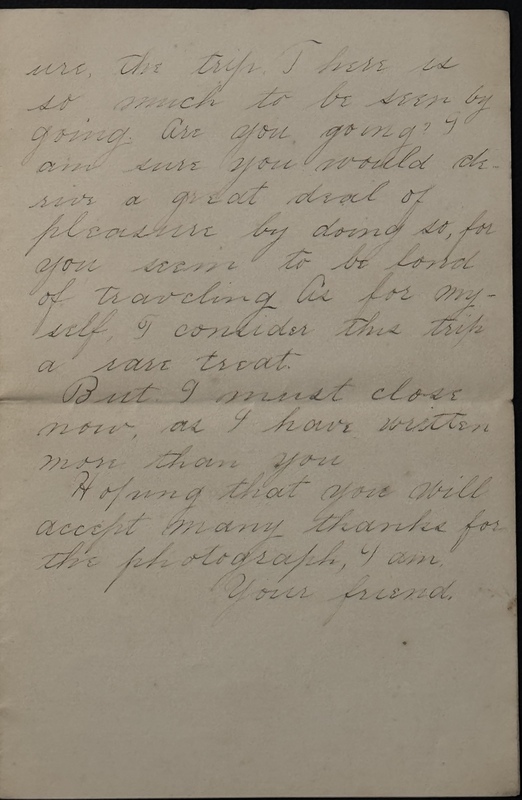 ure, the trip. There is
so much to be seen by
going. Are you going? I
am sure you would de-
rive a great deal of
pleasure by doing so, for
you seem to be fond
of traveling. As for my-
self, I consider this trip
a rare treat.
But I must close
now, as I have written
more than you
Hoping that you will
accept many thanks for
the photograph, I am.
Your friend.